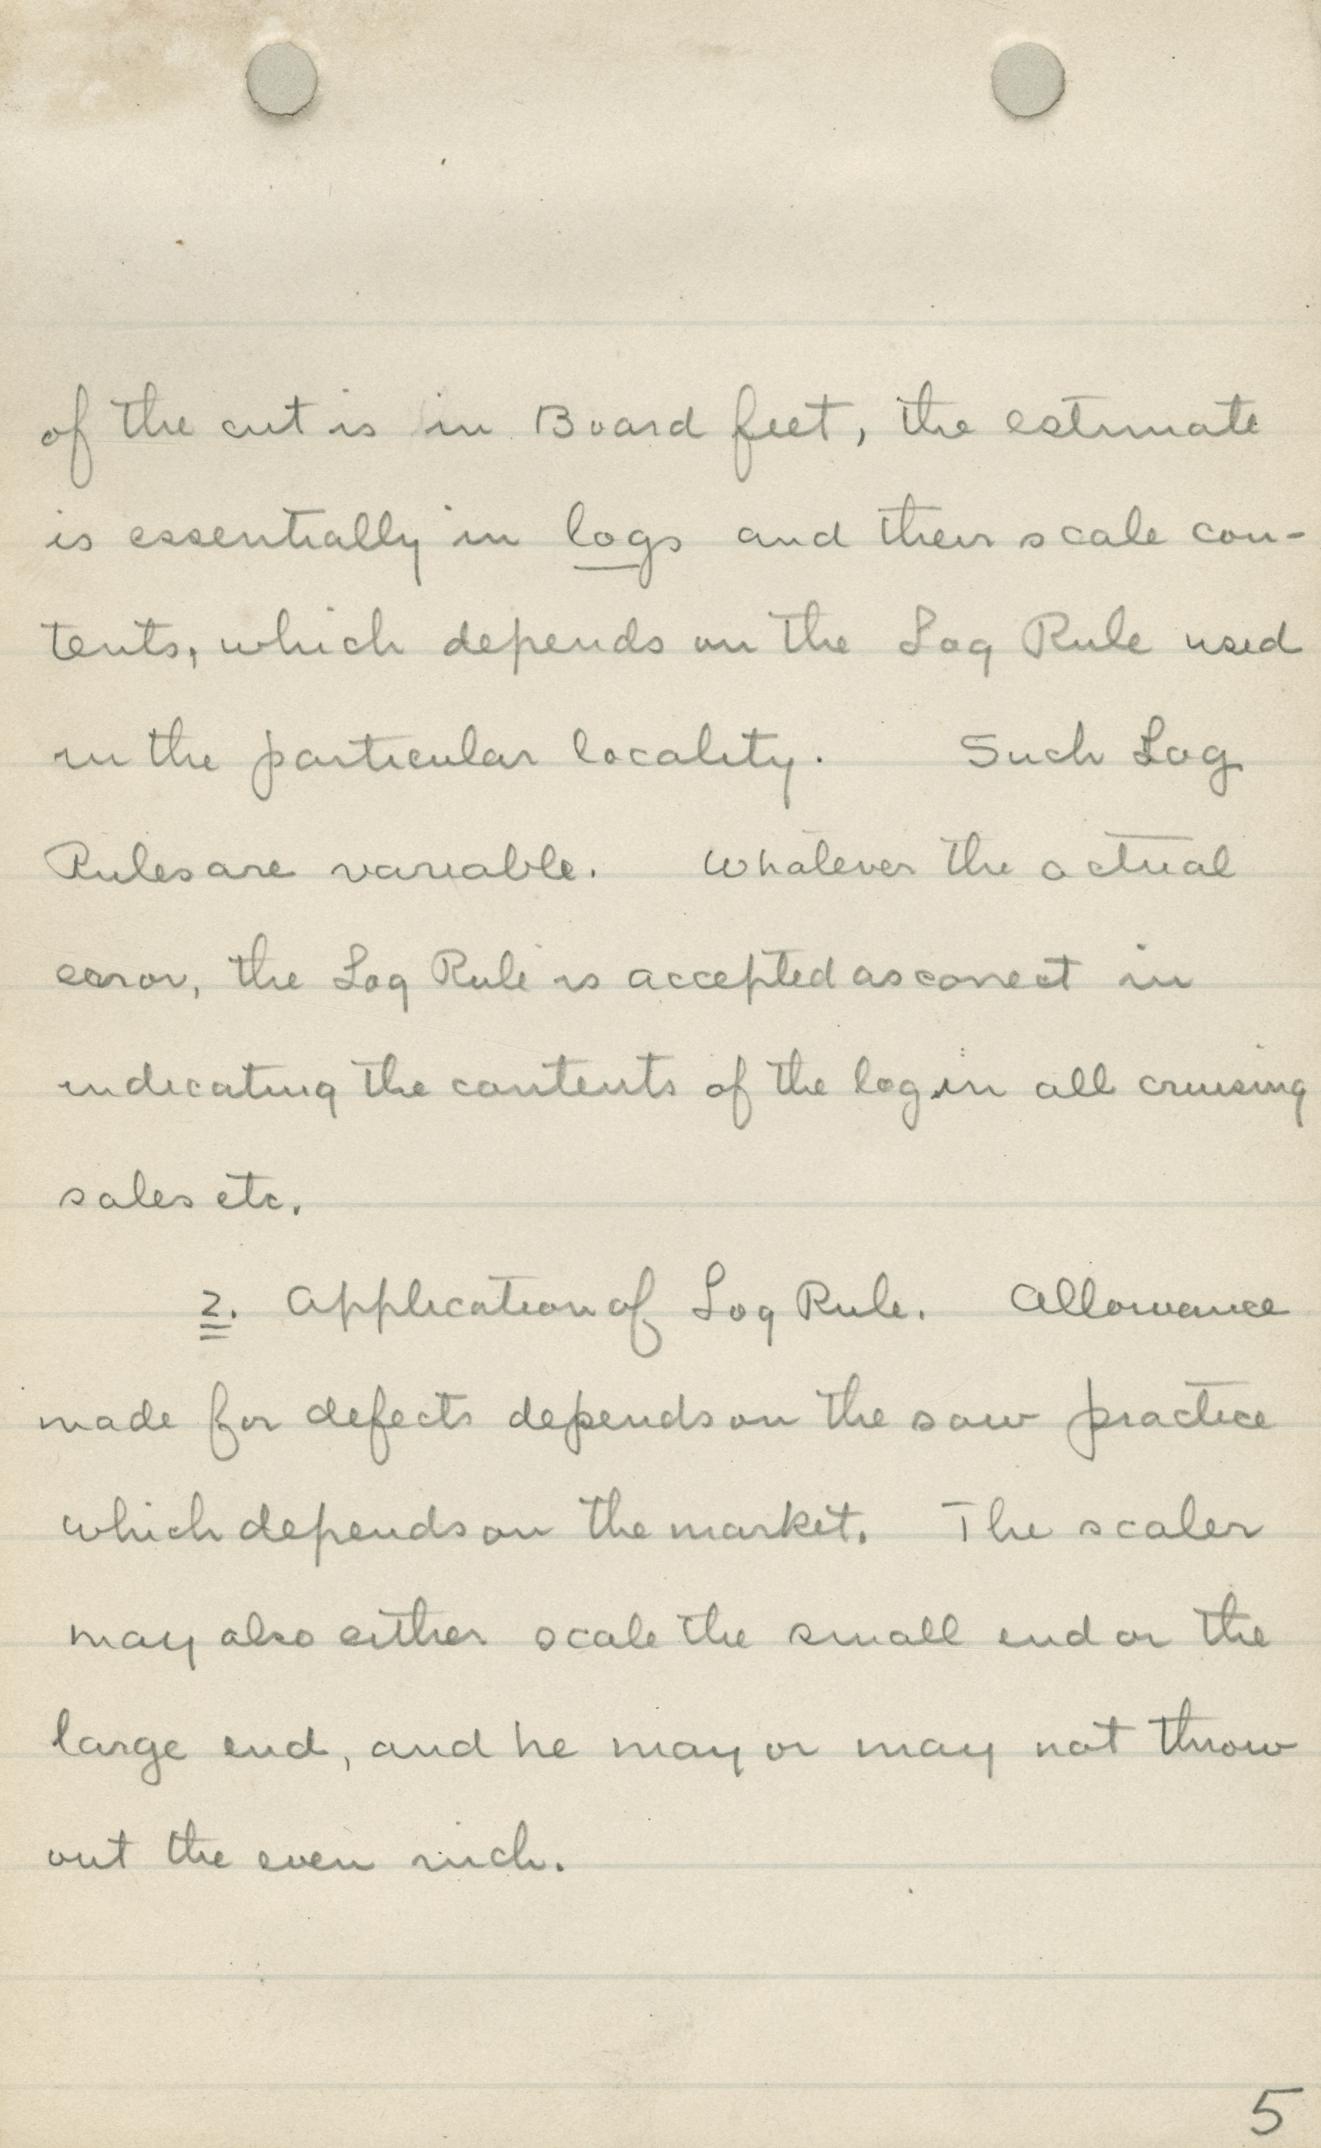 of the cut is in Board feet, the estimate
is essentially in logs and their scale con-
tents, which depends on the Log Rule used
in the particular locality. Such Log
Rules are variable. Whatever the actual
error, the Log Rule is accepted as correct in
indicating the contents of the log in all cruising
sales etc.
2. Application of Log Rule. Allowance
made for defects depends on the saw practice
which depends on the market. The scaler
may also either scale the small end or the
large end, and he may or may not throw
out the even inch.
5